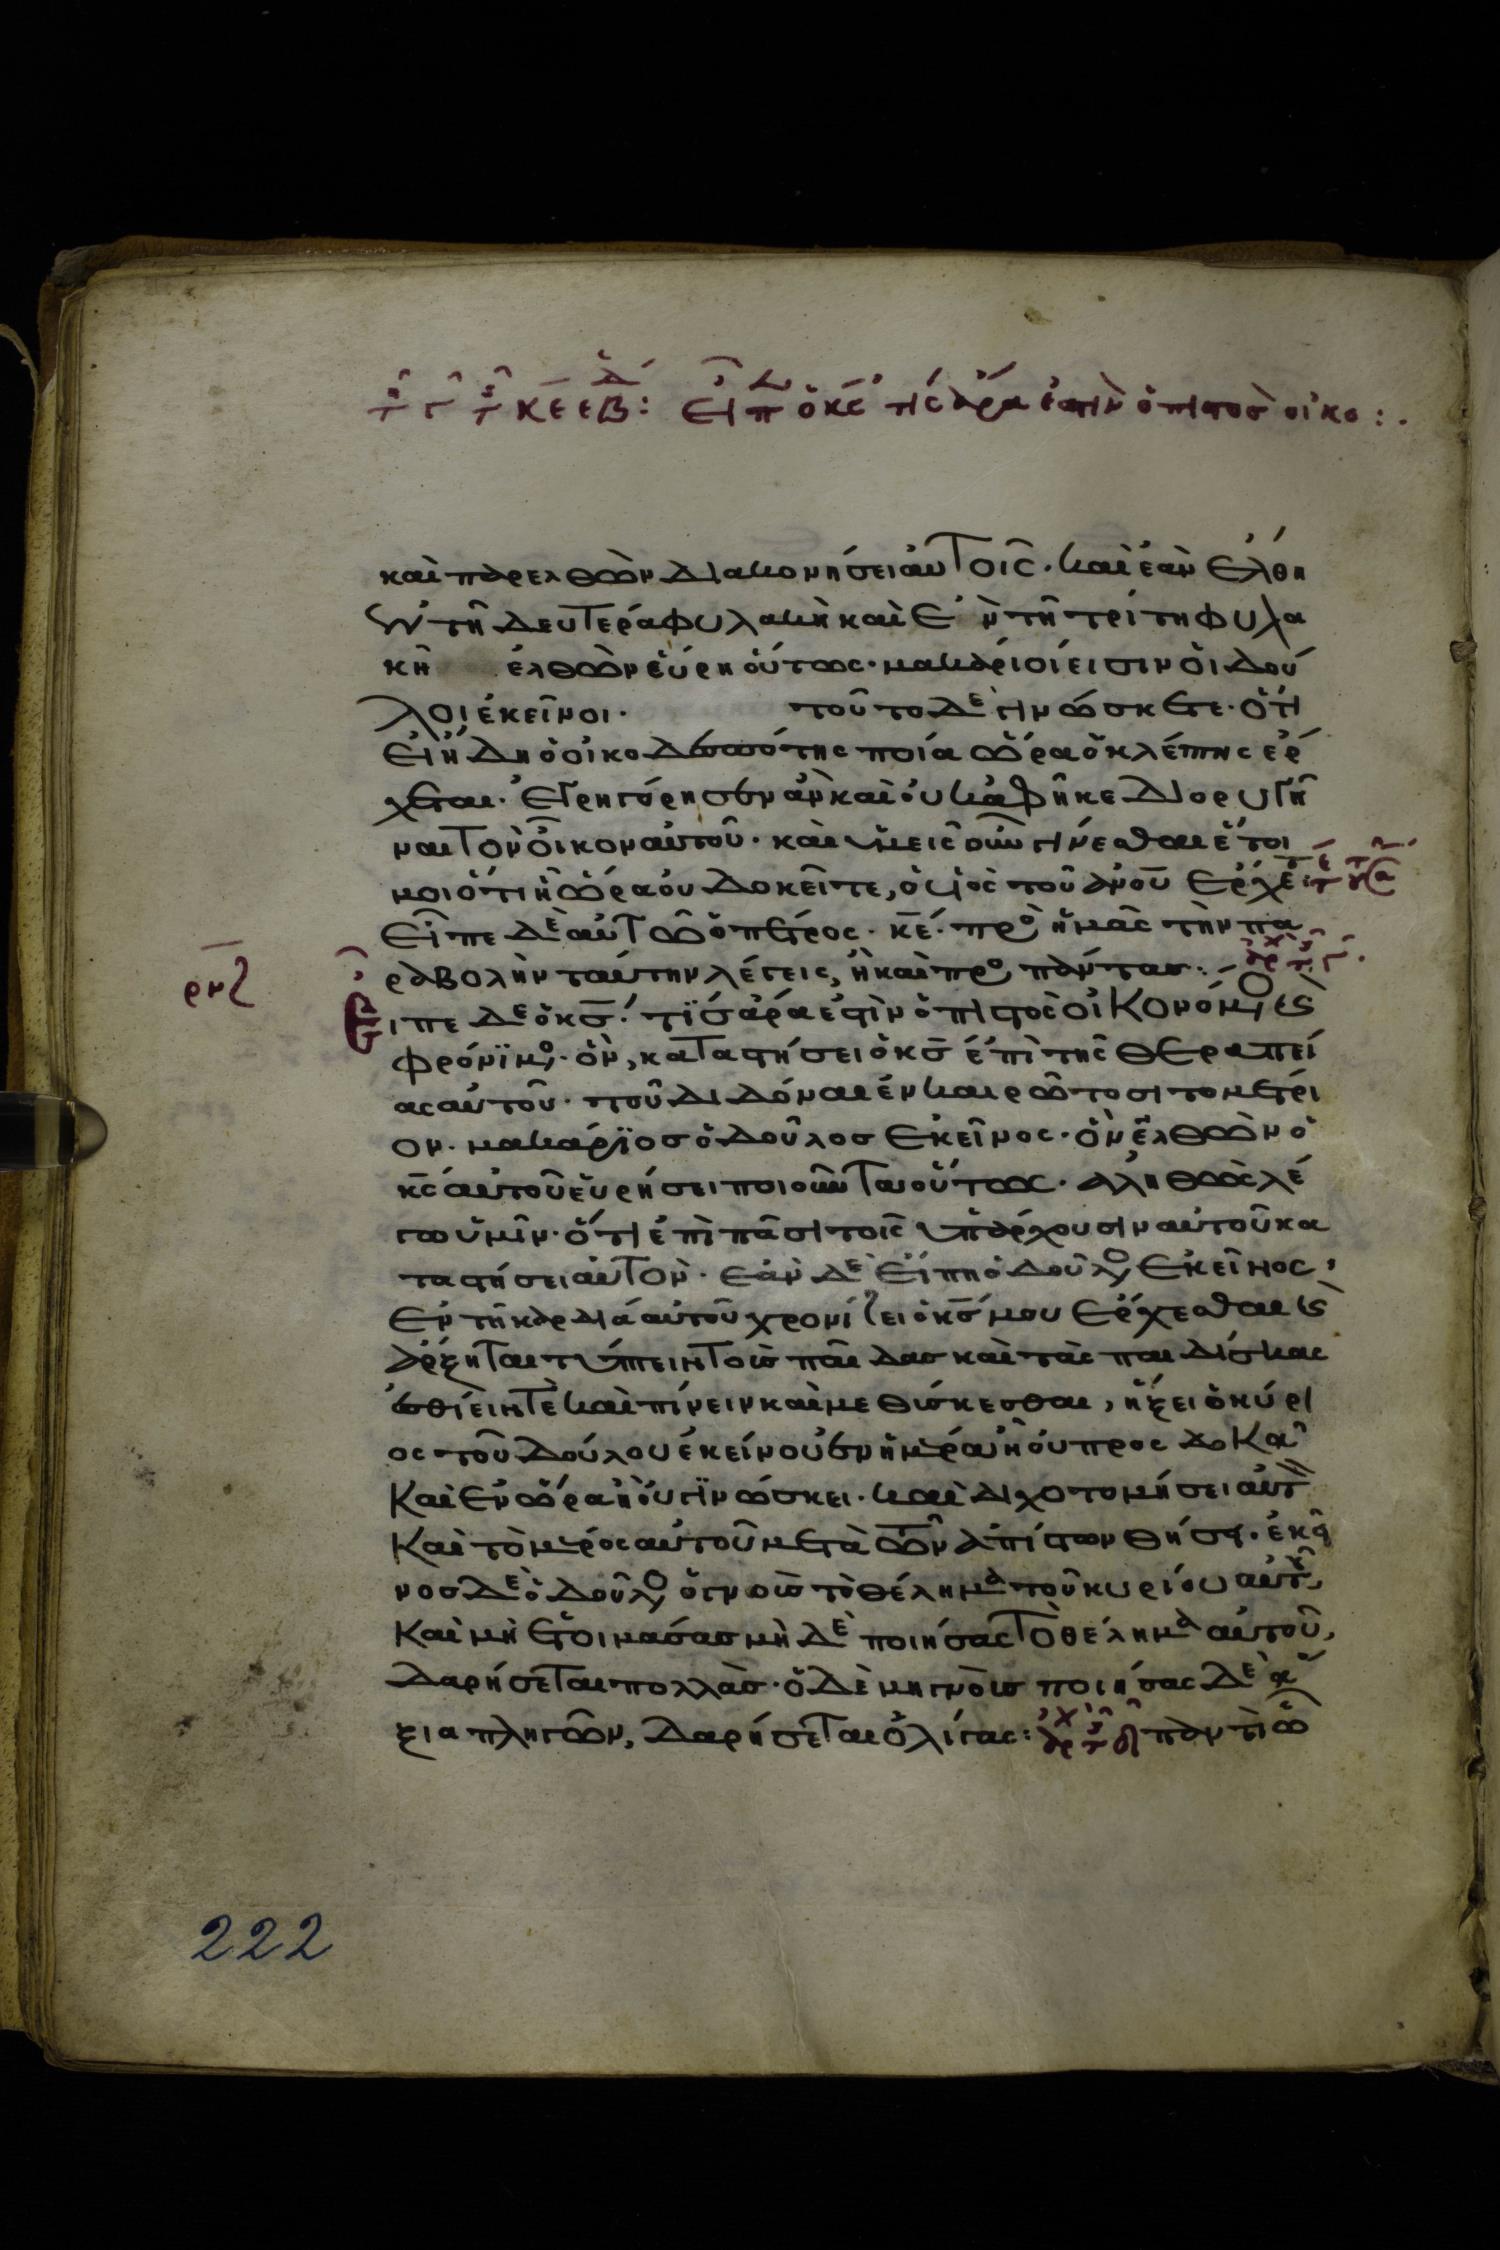 τῇ γ τῆ κε εβδ: Εἶπ ὁ κς τίς ἄρα ἐστὶν ὁ πιστοσ οἰκο:.
καὶ παρελθὼν διακονήσει αὐτοῖς. καὶ ἐὰν ἔλθη
ἐν τῆ δευτέρα φυλακὴ καὶ ἐν τῆ τρίτη φυλα
κῆ ἐλθὼν εὕρη οὕτως. μακάριοί εισιν ὁι δού
λοι ἐκεῖνοι. τοῦτο δὲ γινώσκετε. ὅτι
εἰ ἤδη ὁ οἰκοδεσπότης ποία ὥρα ὁ κλέπτης ερ
χεται. ἐγρηγόρησεν ἀν καὶ ουκ ἀφῆκε διορυγῆ
ναι τὸν οἶκον αυτοῦ. καὶ ὑμεις οὖν γίνεσθαι ἕτοι
μοι ὅτι ἧ ὥρα ου δοκεῖτε, ὁ υἱὸς τοῦ ανου ἔρχεται
Εἶπε δὲ αὐτῶ ὁ πέτρος. κε. προ ἡμᾶς τὴν πα
ραβολὴν ταύτην λέγεις, ἢ καὶ προ πάντας:
ρνζ
Εἶπε δὲ ὁ κς. τίς ἄρα ἐστὶν ὁ πιστὸς οἰκονόμος κὶ
φρόνιμος. ὃν, καταστήσει ὁ κς ἐπὶ τῆς θεραπεί
ας αὐτοῦ. τοῦ διδόναι ἐν καιρῶ το σιτομέτρι
ον. μακάριοσ ὁ δοῦλοσ ἐκεῖνος. ὃν ἐλθὼν ὁ
κς αὐτοῦ εὑρήσει ποιοῦντα οὕτως. ἀληθῶς λέ
γω ὑμῖν. ὅτι ἐπὶ πᾶσι τοῖς ὑπάρχουσιν αυτοῦ κα
ταστήσει αὐτόν. Εὰν δὲ εἴπη ὁ δοῦλος ἐκεῖνος,
ἐν τῆ καρδιά αυτοῦ χρονίζει ὁ κς μου ἔρχεσθαι κὶ
ἄρξηται τύπτειν τοὺσ παῖδασ καὶ τὰς παιδίσκας
ἐσθίειν τὲ καὶ πίνειν καὶ μεθύσκεσθαι, ἥξει ὁ κύρι
ος τοῦ δούλου ἐκείνου ἐν ἡμέρα ἧ οὐ προσδοκα
Καὶ ἐν ὥρα ἧ οὐ γινώσκει. καὶ διχοτομήσει αὐτ
Καὶ τὸ μέρος αὐτοῦ μετὰ τῶν ἀπίστων θήσει. ἐκεῖ
νοσ δὲ ὁ δοῦλος ὁ γνοὺσ τὸ θέλημα τοῦ κυρίου αὐτ,
Καὶ μὴ ἑτοιμάσασ μὴ δὲ ποιήσας τὸ θέλημα αὐτοῦ,
δαρήσεται πολλάσ. ὁ δὲ μὴ γνοὺσ ποιήσας δὲ ἄ
ξια πληγῶν, δαρήσεται ὀλίγας: παντὶ ὧ
222